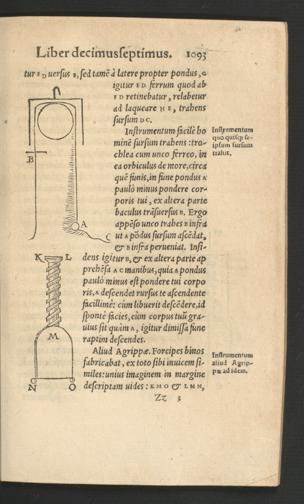 Liber decimusseptimus. 1093
tur E D versus B, sed tamē à latere propter pondus, G
igitur E D ferrum quod ab
F D retinebatur, relabetur
ad laqueare H E, trahens
sursum D C.
Instrumentum facilè ho
minē sursum trahens: tro-
chlea cum unco ferreo, in
ea orbiculus de more, circa
quē funis, in fune pondus A
paulò minus pondere cor-
poris tui, ex altera parte
baculus trāsuersus B. Ergo
appēso unco trahes B infrà
ut A pōdus sursum ascēdat,
& B infrà perueniat. Insi-
dens igitur B, & ex altera parte ap
prehēsa A C manibus, quia A pondus
paulò minus est pondere tui corpo
ris, A descendet rursus te ascendente
facillimè: cùm libuerit descēdere, id
sponte facies, cùm corpus tuū gra-
uius sit quàm A, igitur dimissa fune
raptim descendes.
Aliud Agrippæ. Forcipes binos
fabricabat, ex toto sibi inuicem si-
miles: unius imaginem in margine
descriptam uides: K M O & L N N,
Zz 3
Instrumentum
quo quisq; se-
ipsum sursum
trahit.
Instrumentum
aliud Agrip-
pæ ad idem.
B
A
C
K L
M
N O